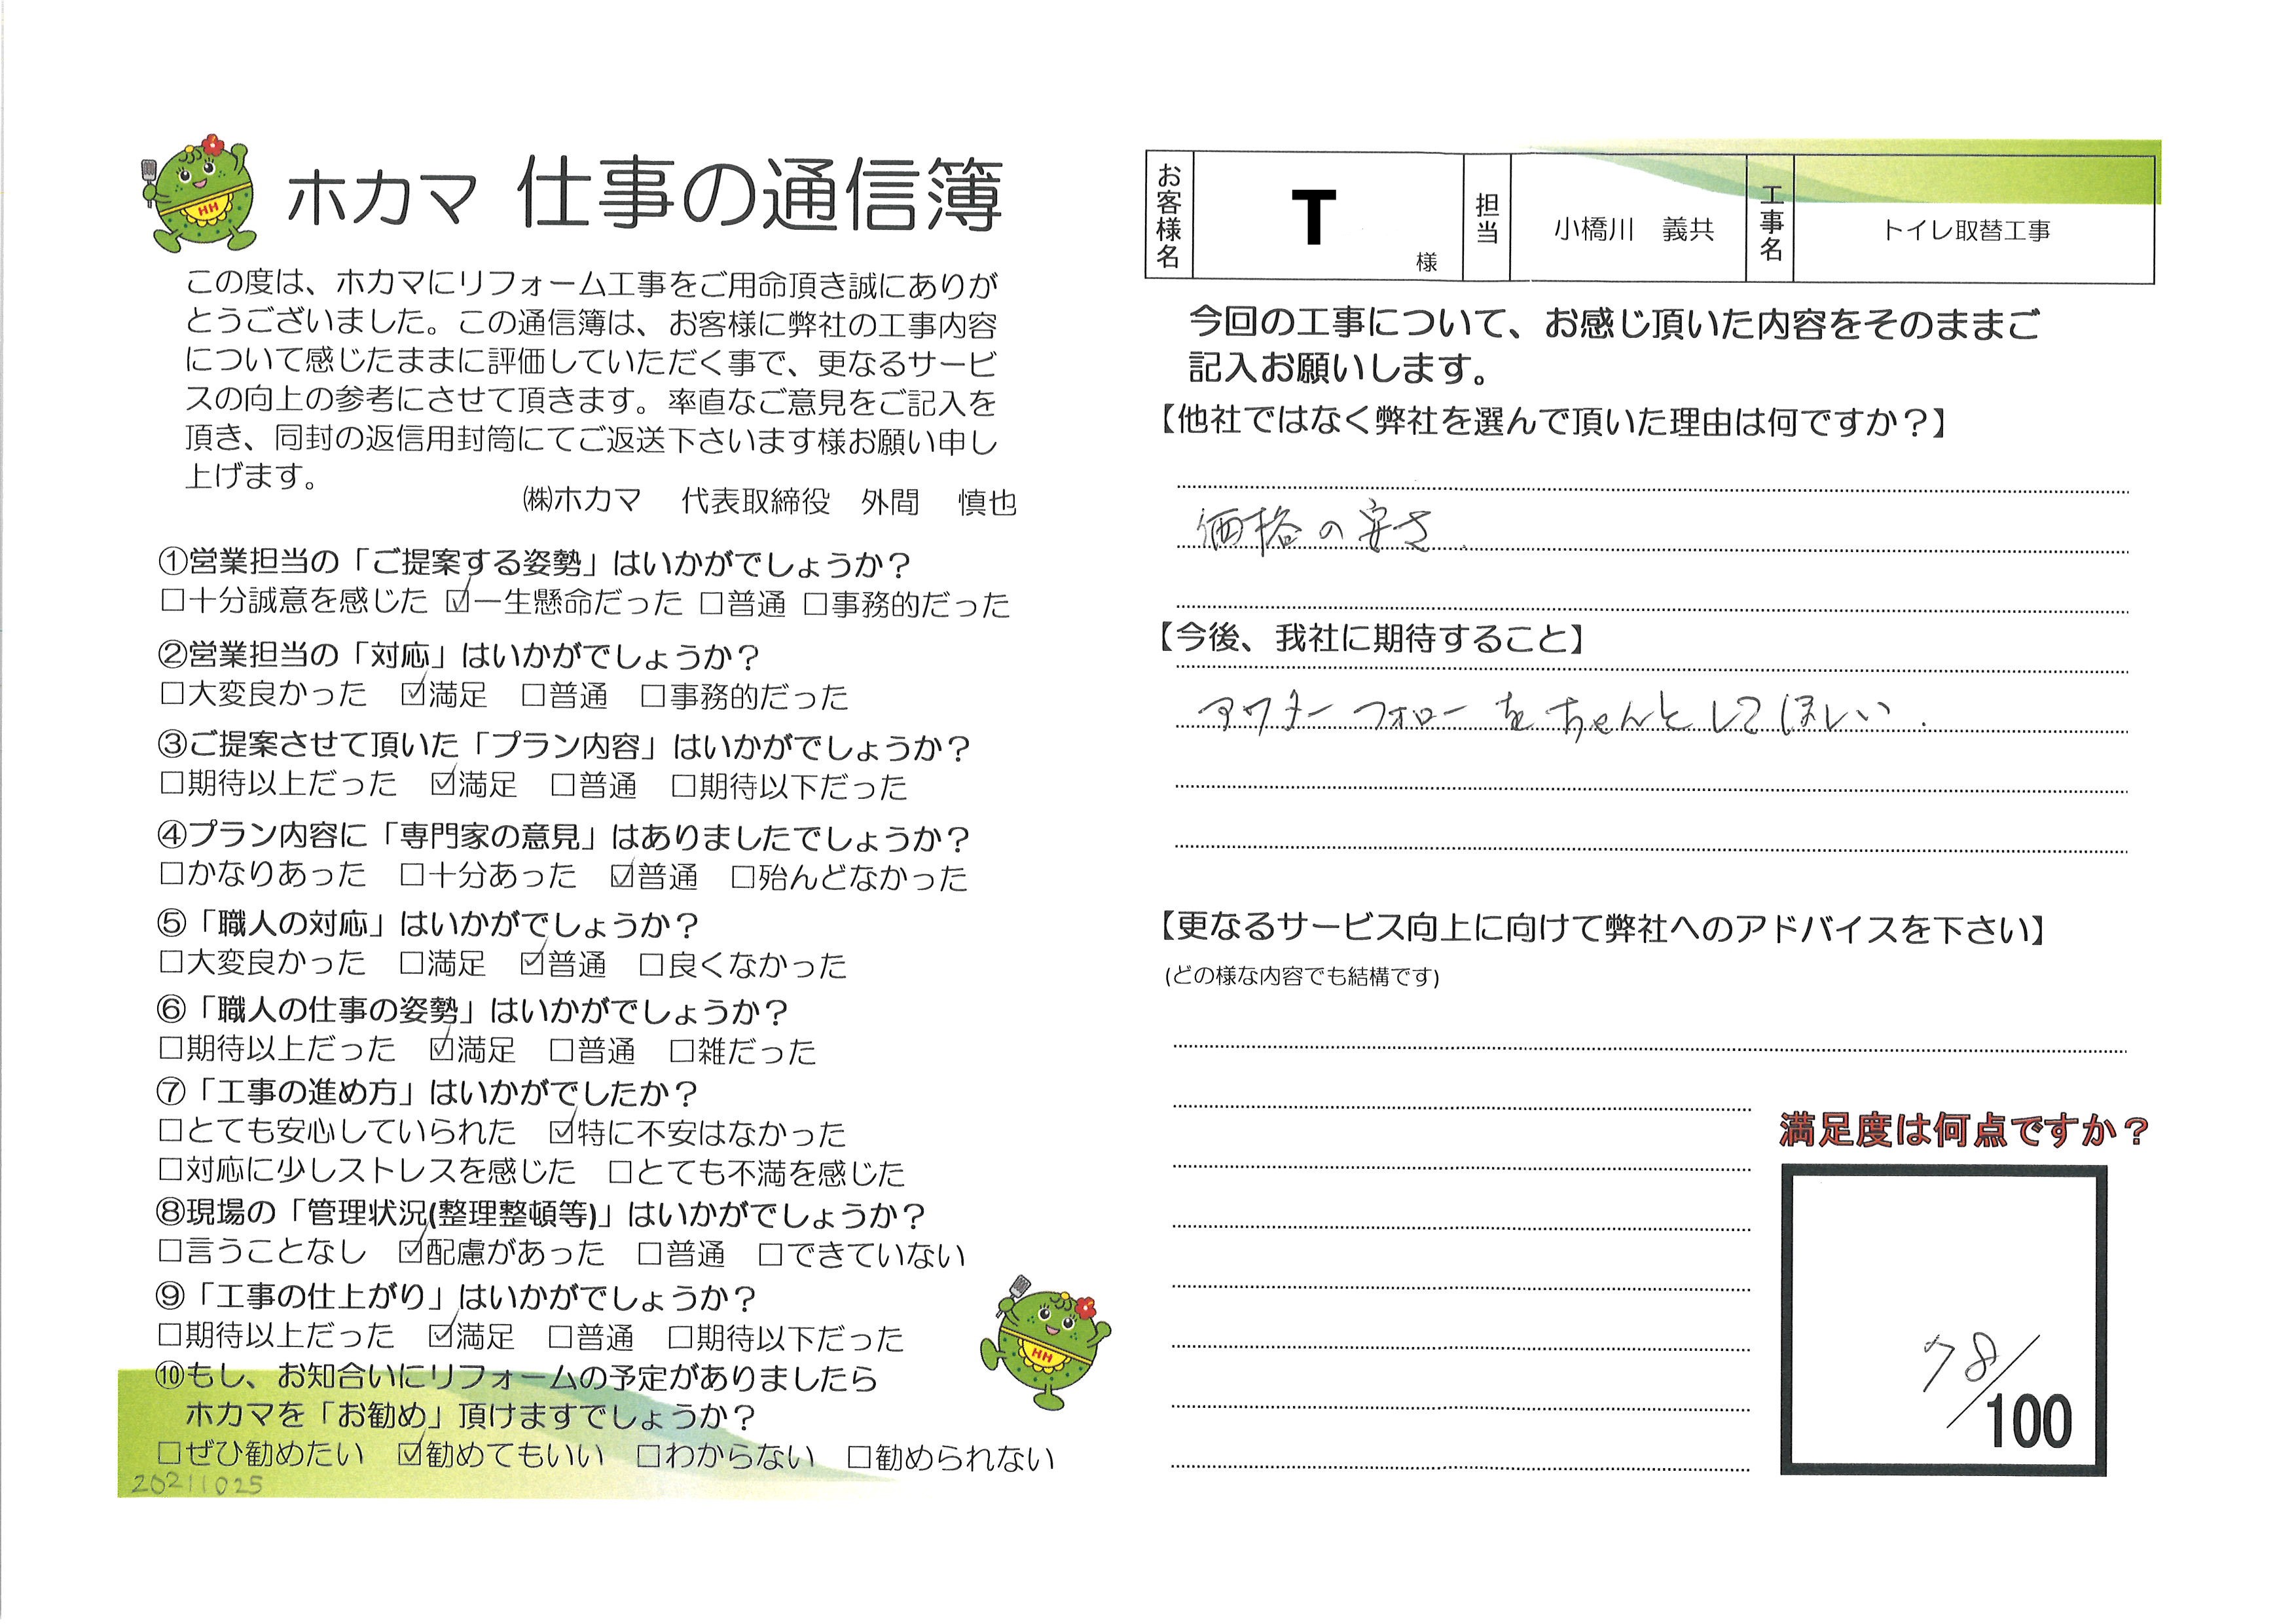 ホカマ 仕事の通信簿
この度は、ホカマにリフォーム工事をご用命頂き誠にありが
とうございました。この通信簿は、お客様に弊社の工事内容
について感じたままに評価していただく事で、更なるサービ
スの向上の参考にさせて頂きます。率直なご意見をご記入を
頂き、同封の返信用封筒にてご返送下さいます様お願い申し
上げます。
㈱ホカマ 代表取締役 外間 慎也
①営業担当の「ご提案する姿勢」はいかがでしょうか?
□十分誠意を感じた ☑一生懸命だった □普通 □事務的だった
②営業担当の「対応」はいかがでしょうか?
□大変良かった ☑満足 □普通 □事務的だった
③ご提案させて頂いた「プラン内容」はいかがでしょうか?
□期待以上だった ☑満足 □普通 □期待以下だった
④プラン内容に「専門家の意見」はありましたでしょうか?
□かなりあった □十分あった ☑普通 □殆んどなかった
⑤「職人の対応」はいかがでしょうか?
□大変良かった □満足 ☑普通 □良くなかった
⑥「職人の仕事の姿勢」はいかがでしょうか?
□期待以上だった ☑満足 □普通 □雑だった
⑦「工事の進め方」はいかがでしたか?
□とても安心していられた ☑特に不安はなかった
□対応に少しストレスを感じた □とても不満を感じた
⑧現場の「管理状況(整理整頓等)」はいかがでしょうか?
□言うことなし ☑配慮があった □普通 □できていない
⑨「工事の仕上がり」はいかがでしょうか?
□期待以上だった ☑満足 □普通 □期待以下だった
⑩もし、お知合いにリフォームの予定がありましたら
ホカマを「お勧め」頂けますでしょうか?
□ぜひ勧めたい ☑勧めてもいい □わからない □勧められない
20211025
HH
HH
お客様名 T 様 担当 小橋川 義共 工事名 トイレ取替工事
今回の工事について、お感じ頂いた内容をそのままご
記入お願いします。
【他社ではなく弊社を選んで頂いた理由は何ですか?】
価格の安さ
【今後、我社に期待すること】
アフターフォローをちゃんとしてほしい.
【更なるサービス向上に向けて弊社へのアドバイスを下さい】
(どの様な内容でも結構です)
満足度は何点ですか?
78/100